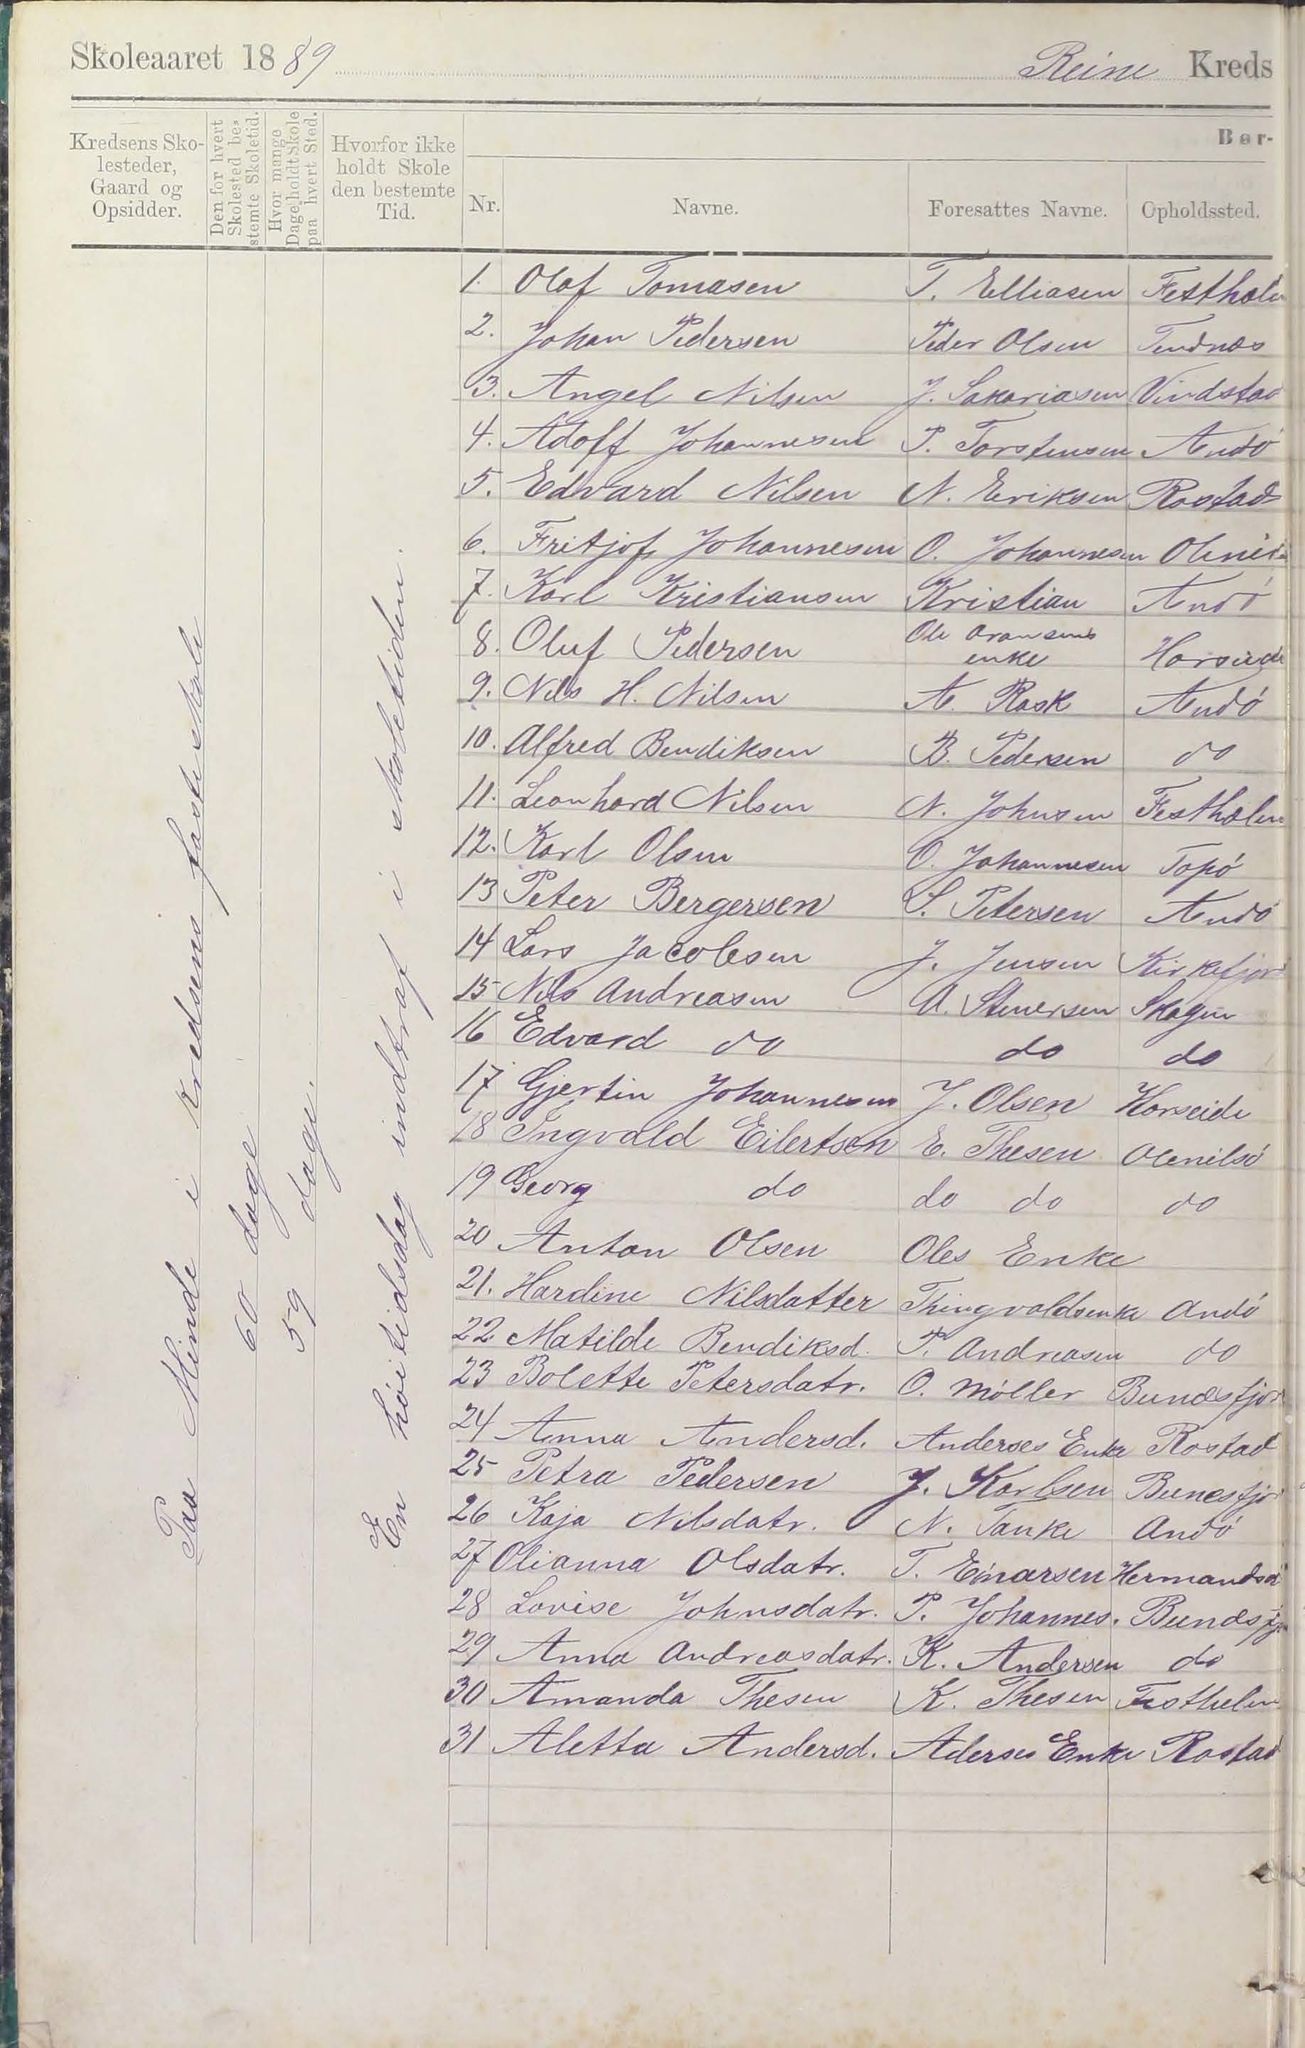 Skoleaaret 1889 Reine Kreds
Kredsens Sko-
lesteder,
Gaard og
Opsidder.
Den for hvert
Skolested be-
stemte Skoletid.
Hvor mange
Dage holdt Skole
paa hvert Sted.
Hvorfor ikke
holdt Skole
den bestemte
Tid.
Bør-
Nr. Navne. Foresattes Navne. Opholdssted.
Paa Minde i kredsens faste skole
60 dage
59 dage.
En höitidsdag indtraf i skoletiden.
1. Olaf Tomasen T. Elliasen Festhæln
2. Johan Pedersen Peder Olsen Tindnæs
3. Angel Nilsen J. Sakariasen Vindstad
4. Adoff Johannesen P. Torstensen Andö
5. Edvard Nilsen N. Eriksen Rostad
6. Fritjof Johannesen O. Johannesen
7. Karl Kristiansen Kristian Andö
8. Oluf Pedersen Ole Aronsens
enke Horseide
9. Nils H. Nilsen A. Rask Andö
10. Alfred Bendiksen B. Pedersen do
11. Leonhard Nilsen N. Johnsen Festhæln
12. Karl Olsen O. Johannesen Topö
13 Peter Bergersen S. Petersen Andö
14 Lars Jacobsen J. Jensen Kirkefjor
15 Nils Andreasen A. Stenersen Skagen
16 Edvard do do do
17 Gjertin Johannesen J. Olsen Horseide
18 Ingvald Eilertsen E. Thesen Olenilsö
19 Georg do do do do
20 Anton Olsen Oles Enke
21. Hardine Nilsdatter Thingvoldsenke Andö
22 Matilde Bendiksd. P. Andreasen do
23 Bolette Petersdatr. O. Möller Bunæsfjor
24 Anna Andersd. Anderses Enke Rostad
25 Petra Pedersen J. Karlsen Bunesfjor
26 Kaja Nilsdatr. N. Tanke Andö
27 Olianna Olsdatr. T. Einarsen Hermandsd
28 Lovise Johnsdatr. P. Johannes. Bundsfj
29 Anna Andreasdatr. K. Andersen do
30 Amanda Thesen K. Thesen Festheln
31 Aletta Andersd. Aderses Enke Rostad